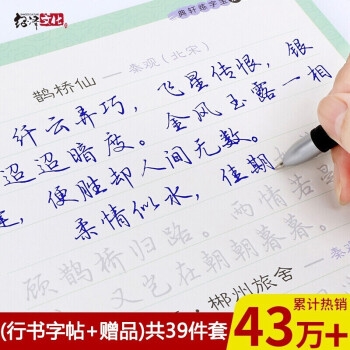 经泽文化
鹊桥仙 — 秦观(北宋)
纤云弄巧，飞星传恨，银
迢迢暗度。金风玉露一相
逢，便胜却人间无数。
柔情似水，佳期
顾鹊桥归路。两情若是
又岂在朝朝暮暮。
·郴州旅舍 — 秦
(行书字帖+赠品)共39件套
累计热销
43万+